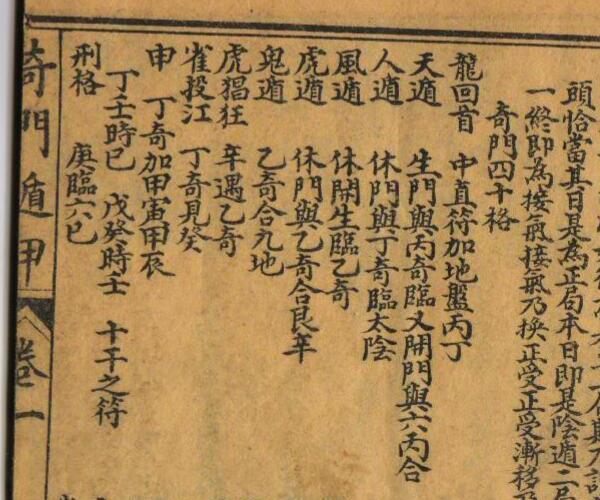 頭恰當其日是為正局本日即是陰遁二局
一終即為接氣接氣乃換正受正受漸移乃
奇門四十格
龍回首 中直符加地盤丙丁
天遁 生門與丙奇臨又開門與六丙合
人遁 休門與丁奇臨太陰
風遁 休開生臨乙奇
虎遁 休門與乙奇合艮辛
鬼遁 乙奇合九地
虎猖狂 辛遇乙奇
雀投江 丁奇見癸
申 丁奇加甲寅甲辰
丁壬時巳 戊癸時壬 十干之符
刑格 庚臨六己
奇門遁甲 卷一